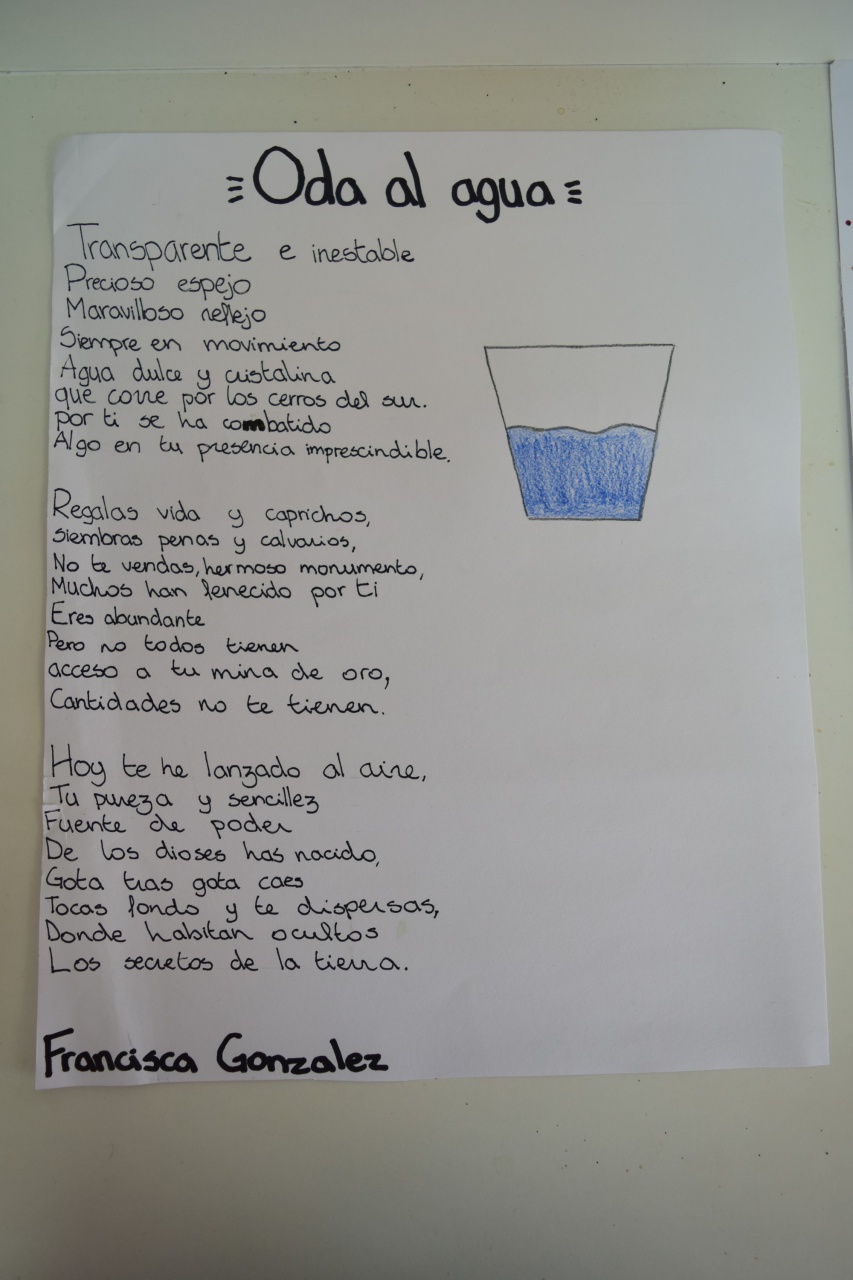 Oda al agua
Transparente e inestable
Precioso espejo
Maravilloso reflejo
Siempre en movimiento
Agua dulce y cristalina
que corre por los cerros del sur.
por ti se ha combatido
Algo en tu presencia imprescindible.
Regalas vida y caprichos,
siembras penas y calvarios,
No te vendas, hermoso monumento,
Muchos han fenecido por ti
Eres abundante
Pero no todos tienen
acceso a tu mina de oro,
Cantidades no te tienen.
Hoy te he lanzado al aire,
Tu pureza y sencillez
Fuente de poder
De los dioses has nacido,
Gota tras gota caes
Tocas fondo y te dispersas,
Donde habitan ocultos
Los secretos de la tierra.
Francisca Gonzalez